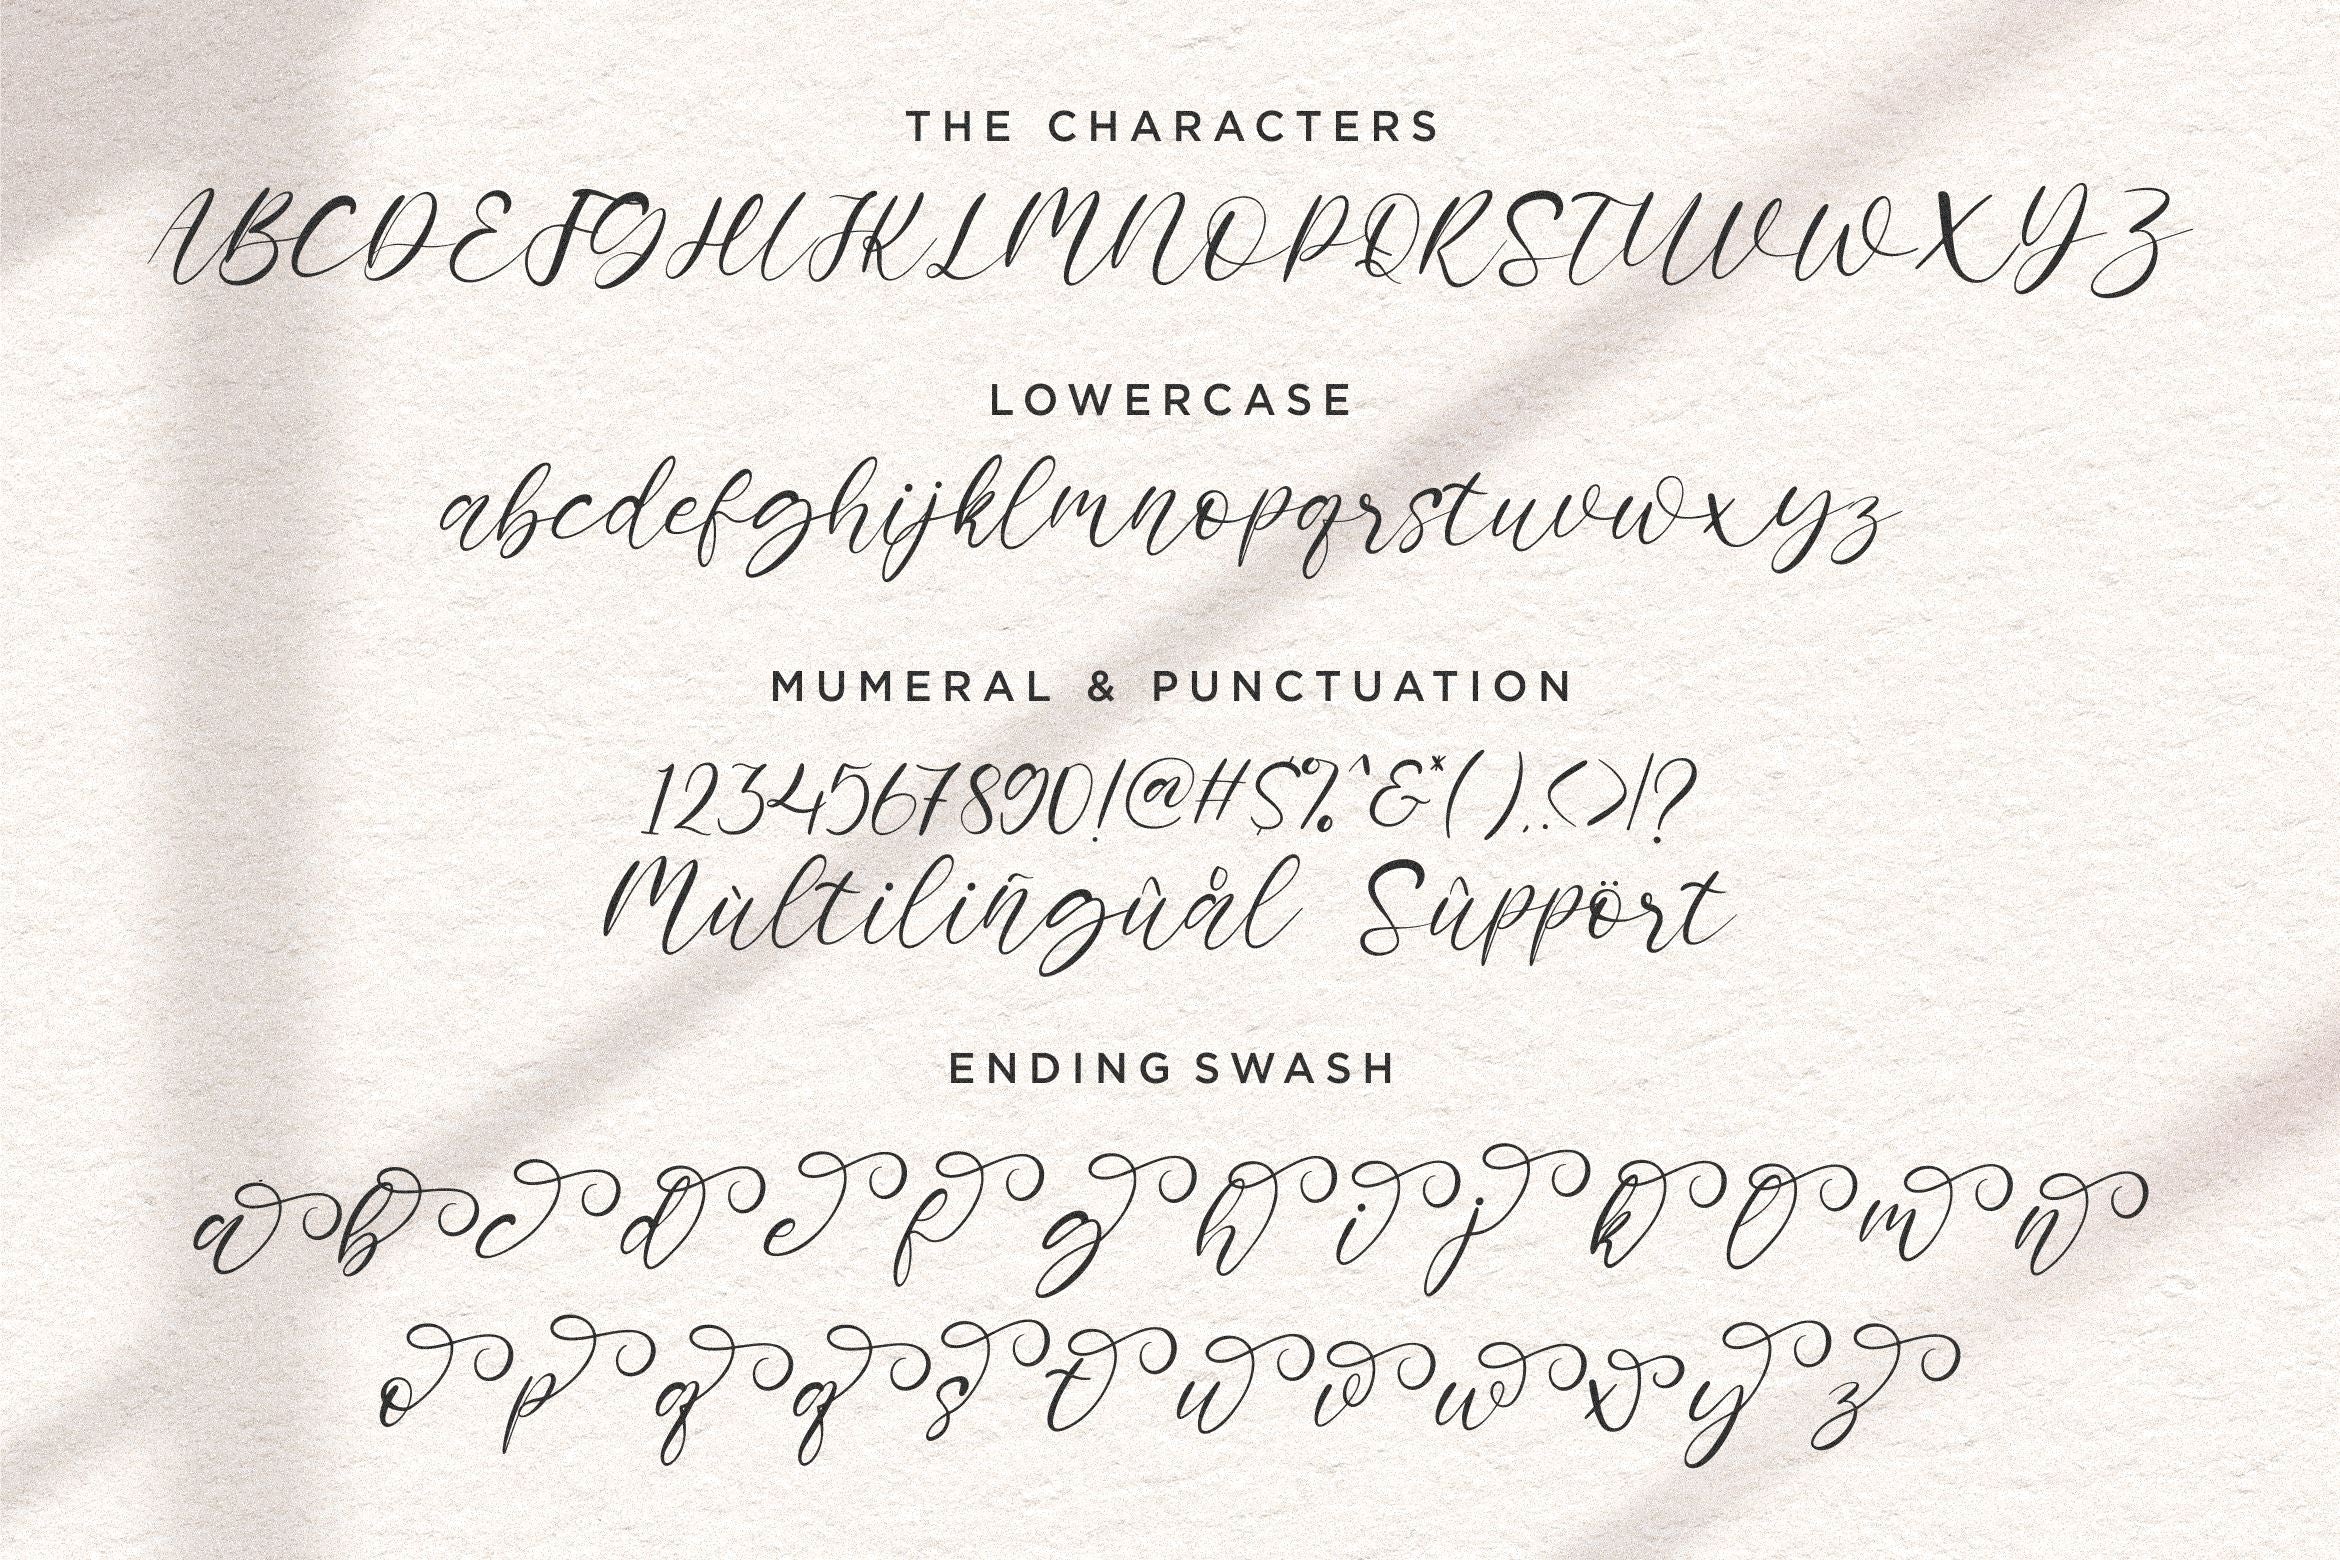 THE CHARACTERS
ABCDEFGHIJKLMNOPQRSTUVWXYZ
LOWERCASE
abcdefghijklmnopqrstuvwxyz
MUMERAL & PUNCTUATION
1234567890!@#$%^&*(),.<>/?
Mùltiliñgûål Sûppört
ENDING SWASH
abcdefghijklmn
opqqstuvwxyz